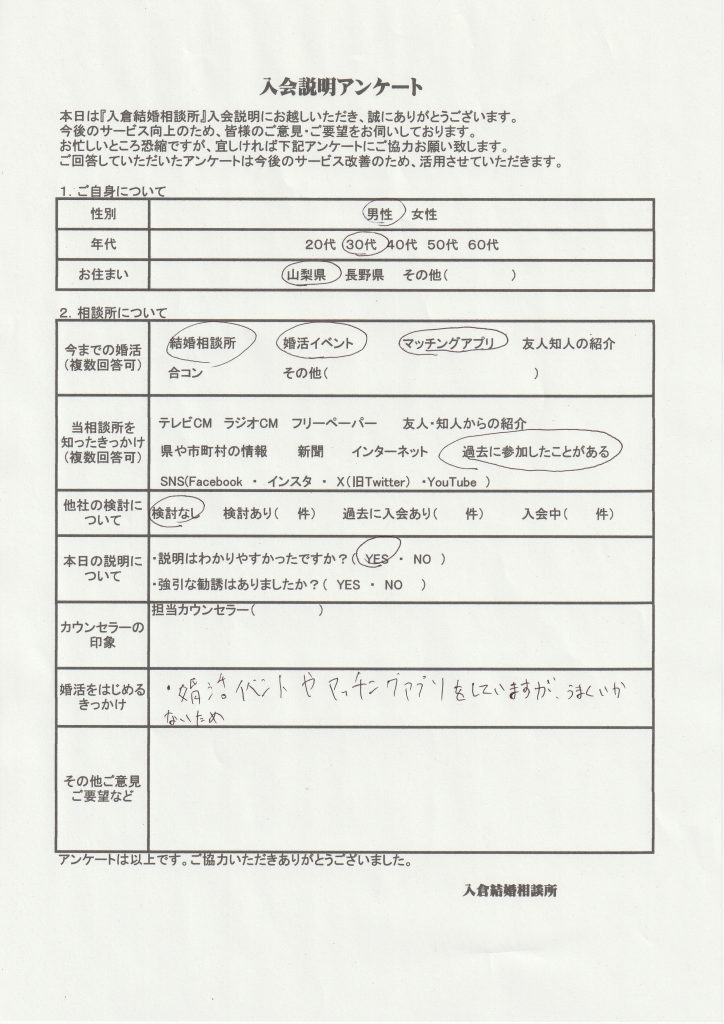 入会説明アンケート
本日は『入倉結婚相談所』入会説明にお越しいただき、誠にありがとうございます。
今後のサービス向上のため、皆様のご意見・ご要望をお伺いしております。
お忙しいところ恐縮ですが、宜しければ下記アンケートにご協力お願い致します。
ご回答していただいたアンケートは今後のサービス改善のため、活用させていただきます。
1. ご自身について
性別 男性 女性
年代 20代 30代 40代 50代 60代
お住まい 山梨県 長野県 その他( )
2. 相談所について
今までの婚活
(複数回答可)
結婚相談所 婚活イベント マッチングアプリ 友人知人の紹介
合コン その他( )
当相談所を
知ったきっかけ
(複数回答可)
テレビCM ラジオCM フリーペーパー 友人・知人からの紹介
県や市町村の情報 新聞 インターネット 過去に参加したことがある
SNS(Facebook ・ インスタ ・ X(旧Twitter) ・YouTube )
他社の検討に
ついて
検討なし 検討あり( 件) 過去に入会あり( 件) 入会中( 件)
本日の説明に
ついて
・説明はわかりやすかったですか?( YES ・ NO )
・強引な勧誘はありましたか?( YES ・ NO )
カウンセラーの
印象
担当カウンセラー( )
婚活をはじめる
きっかけ
・婚活イベントやマッチングアプリをしていますが、うまくいか
ないため
その他ご意見
ご要望など
アンケートは以上です。ご協力いただきありがとうございました。
入倉結婚相談所